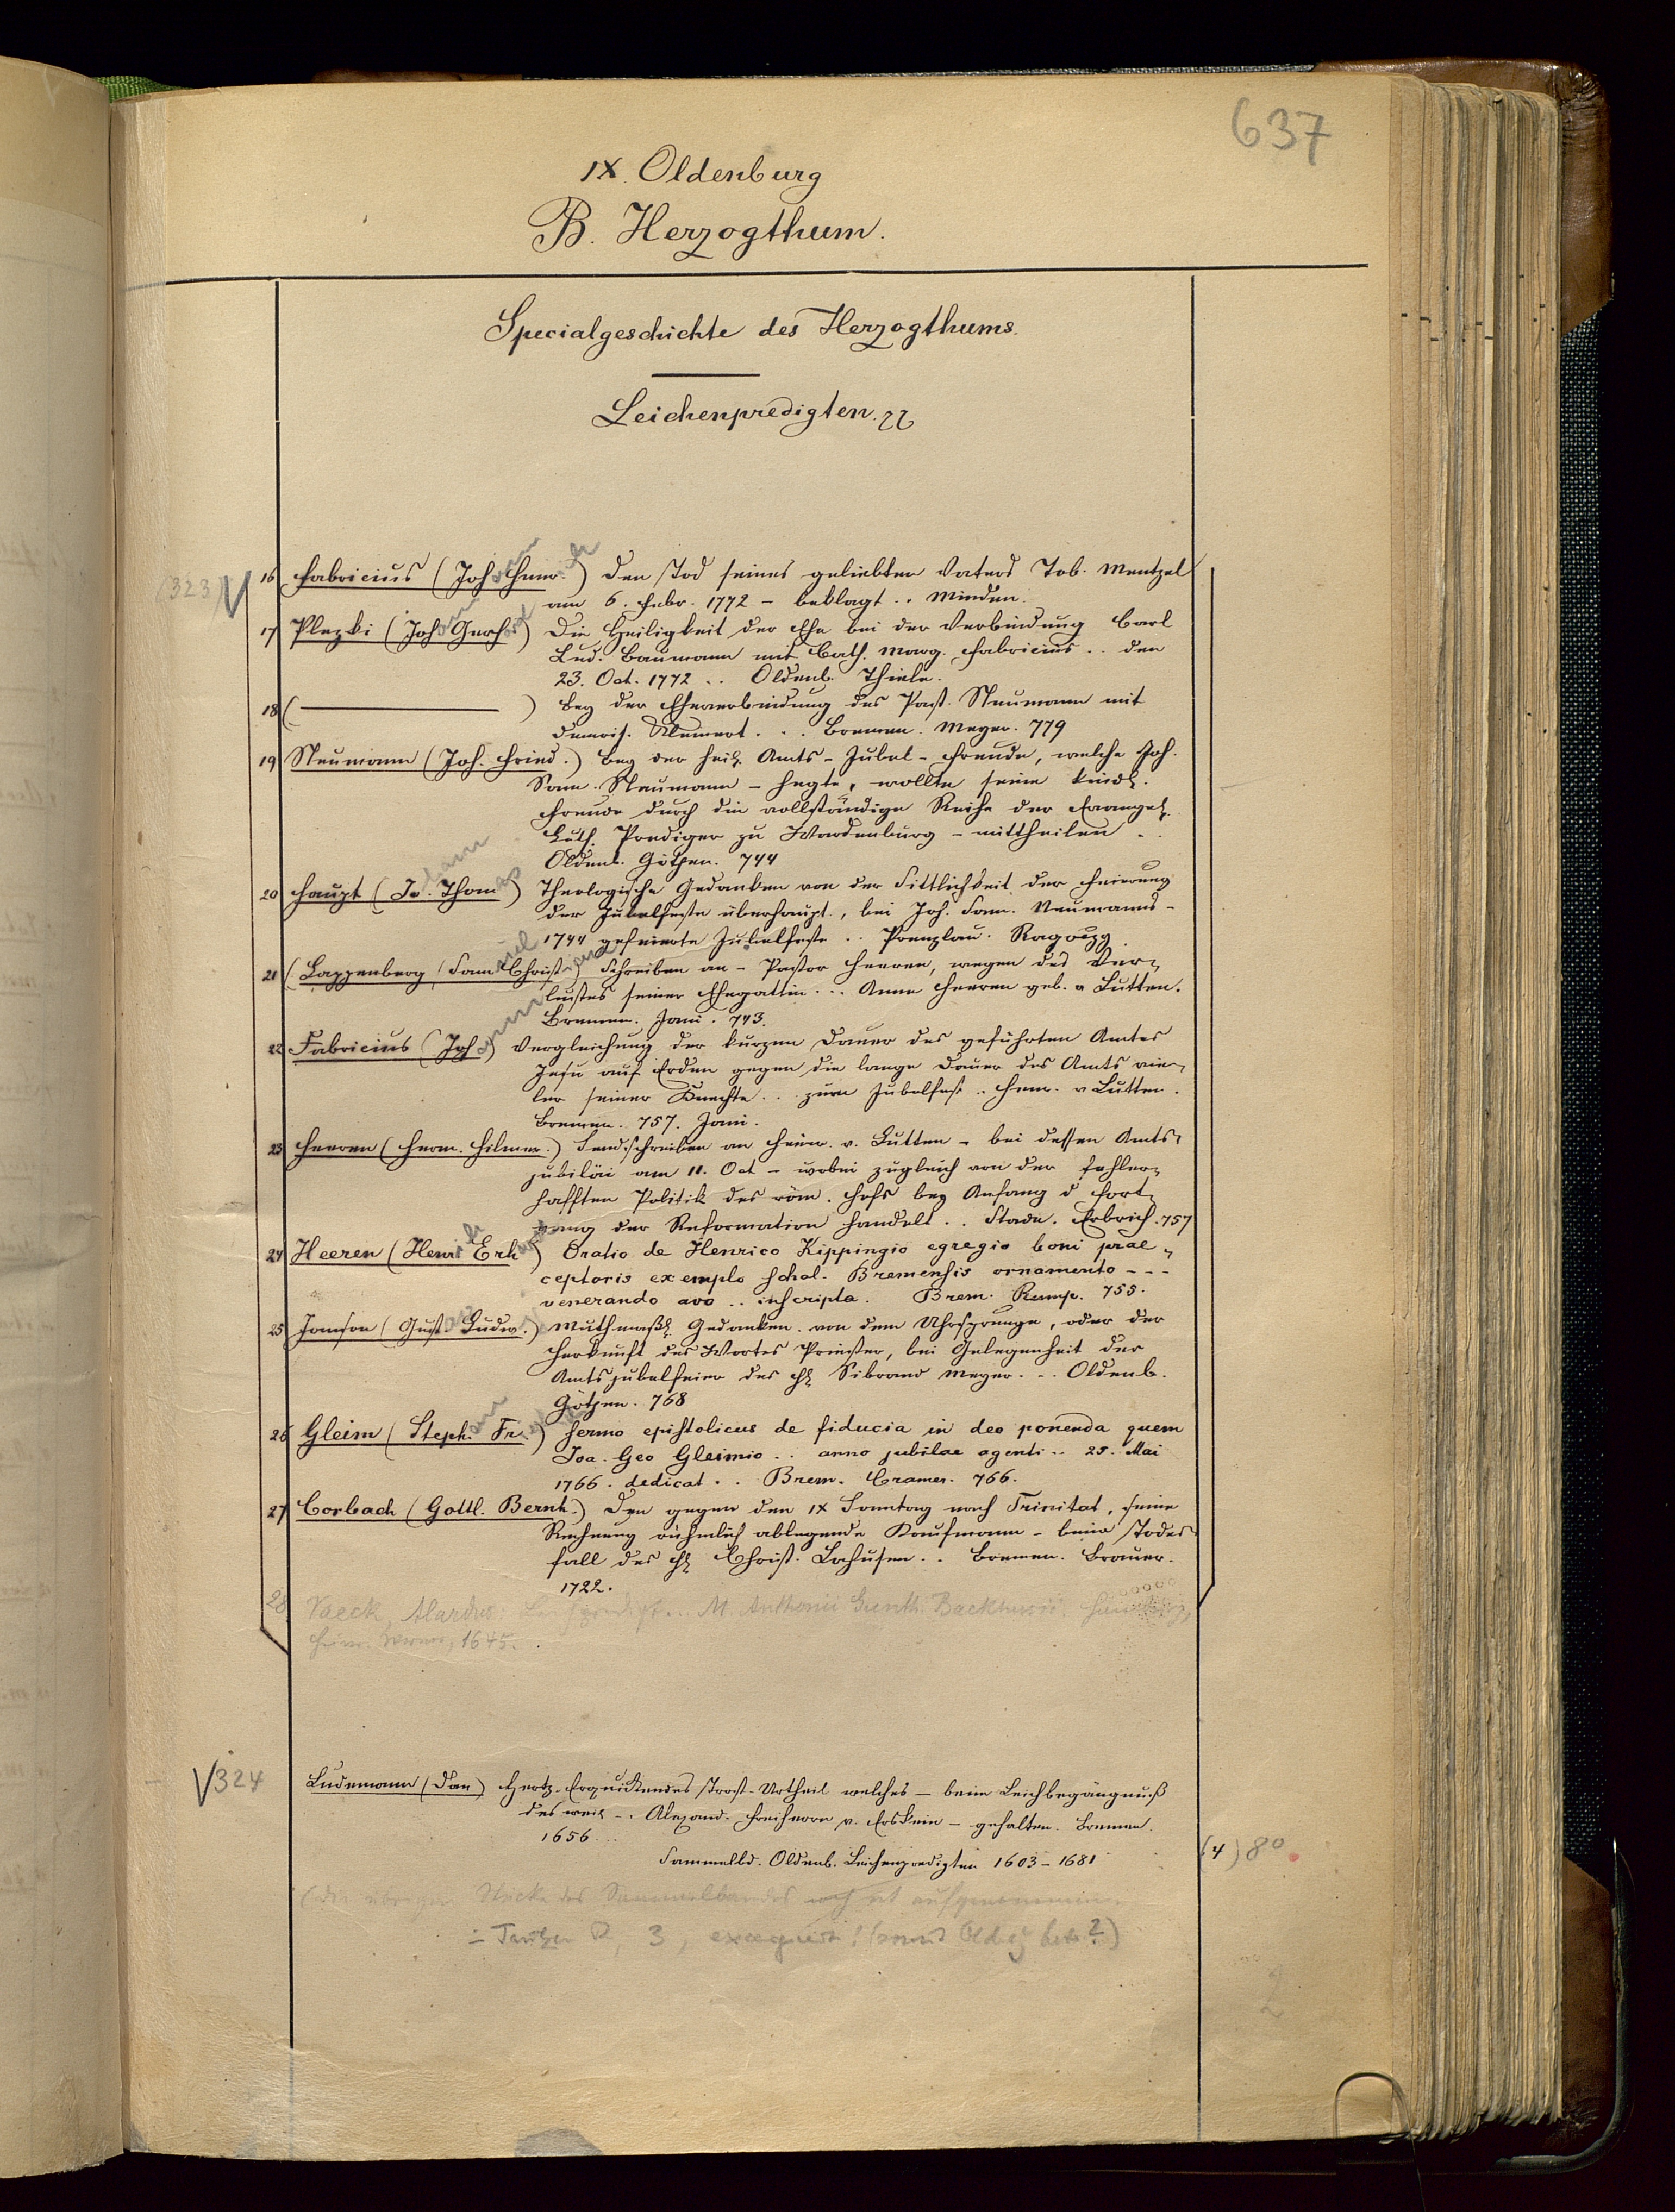 637
IX. Oldenburg
B. Herzogthum.
Specialgeschichte des Herzogthums.
Leichenpredigten.
(323) V 16 Fabricius (Johann Henr.) Den Tod seines geliebten Vaters Tob. Mentzel
am 6. Febr. 1772 – beklagt .. Minden.
17 Plezki (Johann Gerh.) Die Heiligkeit der Ehe bei der Verbindung Carl
Lud. Baumann mit Cath. Marg. Fabricius .. den
23. Oct. 1772 .. Oldenb. Thiele.
18 ( ——— ) Bey der Eheverbindung des Past. Neumann mit
Bremen. Meyer. 779
19 Neumann (Joh. Fried.) Bey der heil. Amts-Jubel-Freude, welche Joh.
Sam. Neumann – hegte, wollte seine kindl.
Freude durch die vollständige Reihe der Evangel.
Luth. Prediger zu Wardenburg – mittheilen ..
Oldenb. Götjen. 744
20 Haupt (Jo. Thomas) Theologische Gedanken von der Sittlichkeit der Feierung
der Jubelfeste überhaupt, bei Joh. Sam. Neumanns –
1744 gefeierte Jubelfeste .. Prenzlau. Ragoczy.
21 (Lappenberg (Samuel Christian) Schreiben an – Pastor Heeren, wegen des Ver-
lustes seiner Ehegattin ... Anne Heeren geb. v Lutten.
Bremen. Jani. 743.
22 Fabricius (Johann) Vergleichung der kurzen Dauer des geführten Amtes
Jesu auf Erden gegen die lange Dauer des Amts vie-
ler seiner Knechte .. zum Jubelfest .. Henr. v Lutten.
Bremen. 757. Jani.
23 Heeren (Herm. Hilmer.) Sendschreiben an Heinr. v. Lutten – bei dessen Amts-
jubiläi am 11. Oct – wobei zugleich von der fehler-
hafften Politik des röm. Hofs bey Anfang d Fort-
gang der Reformation handelt .. Stade. Erbrich. 757
24 Heeren (Henrich Erh) Oratio de Henrico Kippingio egregio boni prae-
ceptoris exemplo schol. Bremensis ornamento - - -
venerando avo .. inscripta. Brem. Rump. 755.
25 Janson (Gustav Ludw.) Muthmaßl Gedanken von dem Uhrsprunge, oder der
Herkunft des Wortes Priester, bei Gelegenheit der
Amtsjubelfeier des H. Sibrand Meyer. .. Oldenb.
Götjen. 768
26 Gleim (Stephan Fr.) Sermo epistolicus de fiducia in deo ponenda quem
Joa. Geo Gleimio .. anno jubilae agenti .. 25. Mai
1766. dedicat .. Brem. Cramer. 766.
27 Corbach (Gottl. Bernh.) Den gegen den IX Sonntag nach Trinitat, seine
Rechnung rühmlich ablegende Kaufmann – beim Todes-
fall des H. Christ. Lahusen .. Bremen. Brauer.
1722.
28 Vaeck, Alardus: Leichpredigt .. M. Anthonii Günth. Backhusii.
1645.
V 324 Ludemann (Dan) Hertz-Erquickendes Trost-Urtheil welches – beim Leichbegängnuß
des weil .. Alexand. Freiherrn v. Erskein – gehalten. Bremen.
1656 ...
Sammelbd. Oldenb. Leichenpredigten 1603 – 1681 (4) 8°
(die übrigen Stücke des Sammelbandes noch nit aufgenommen
2